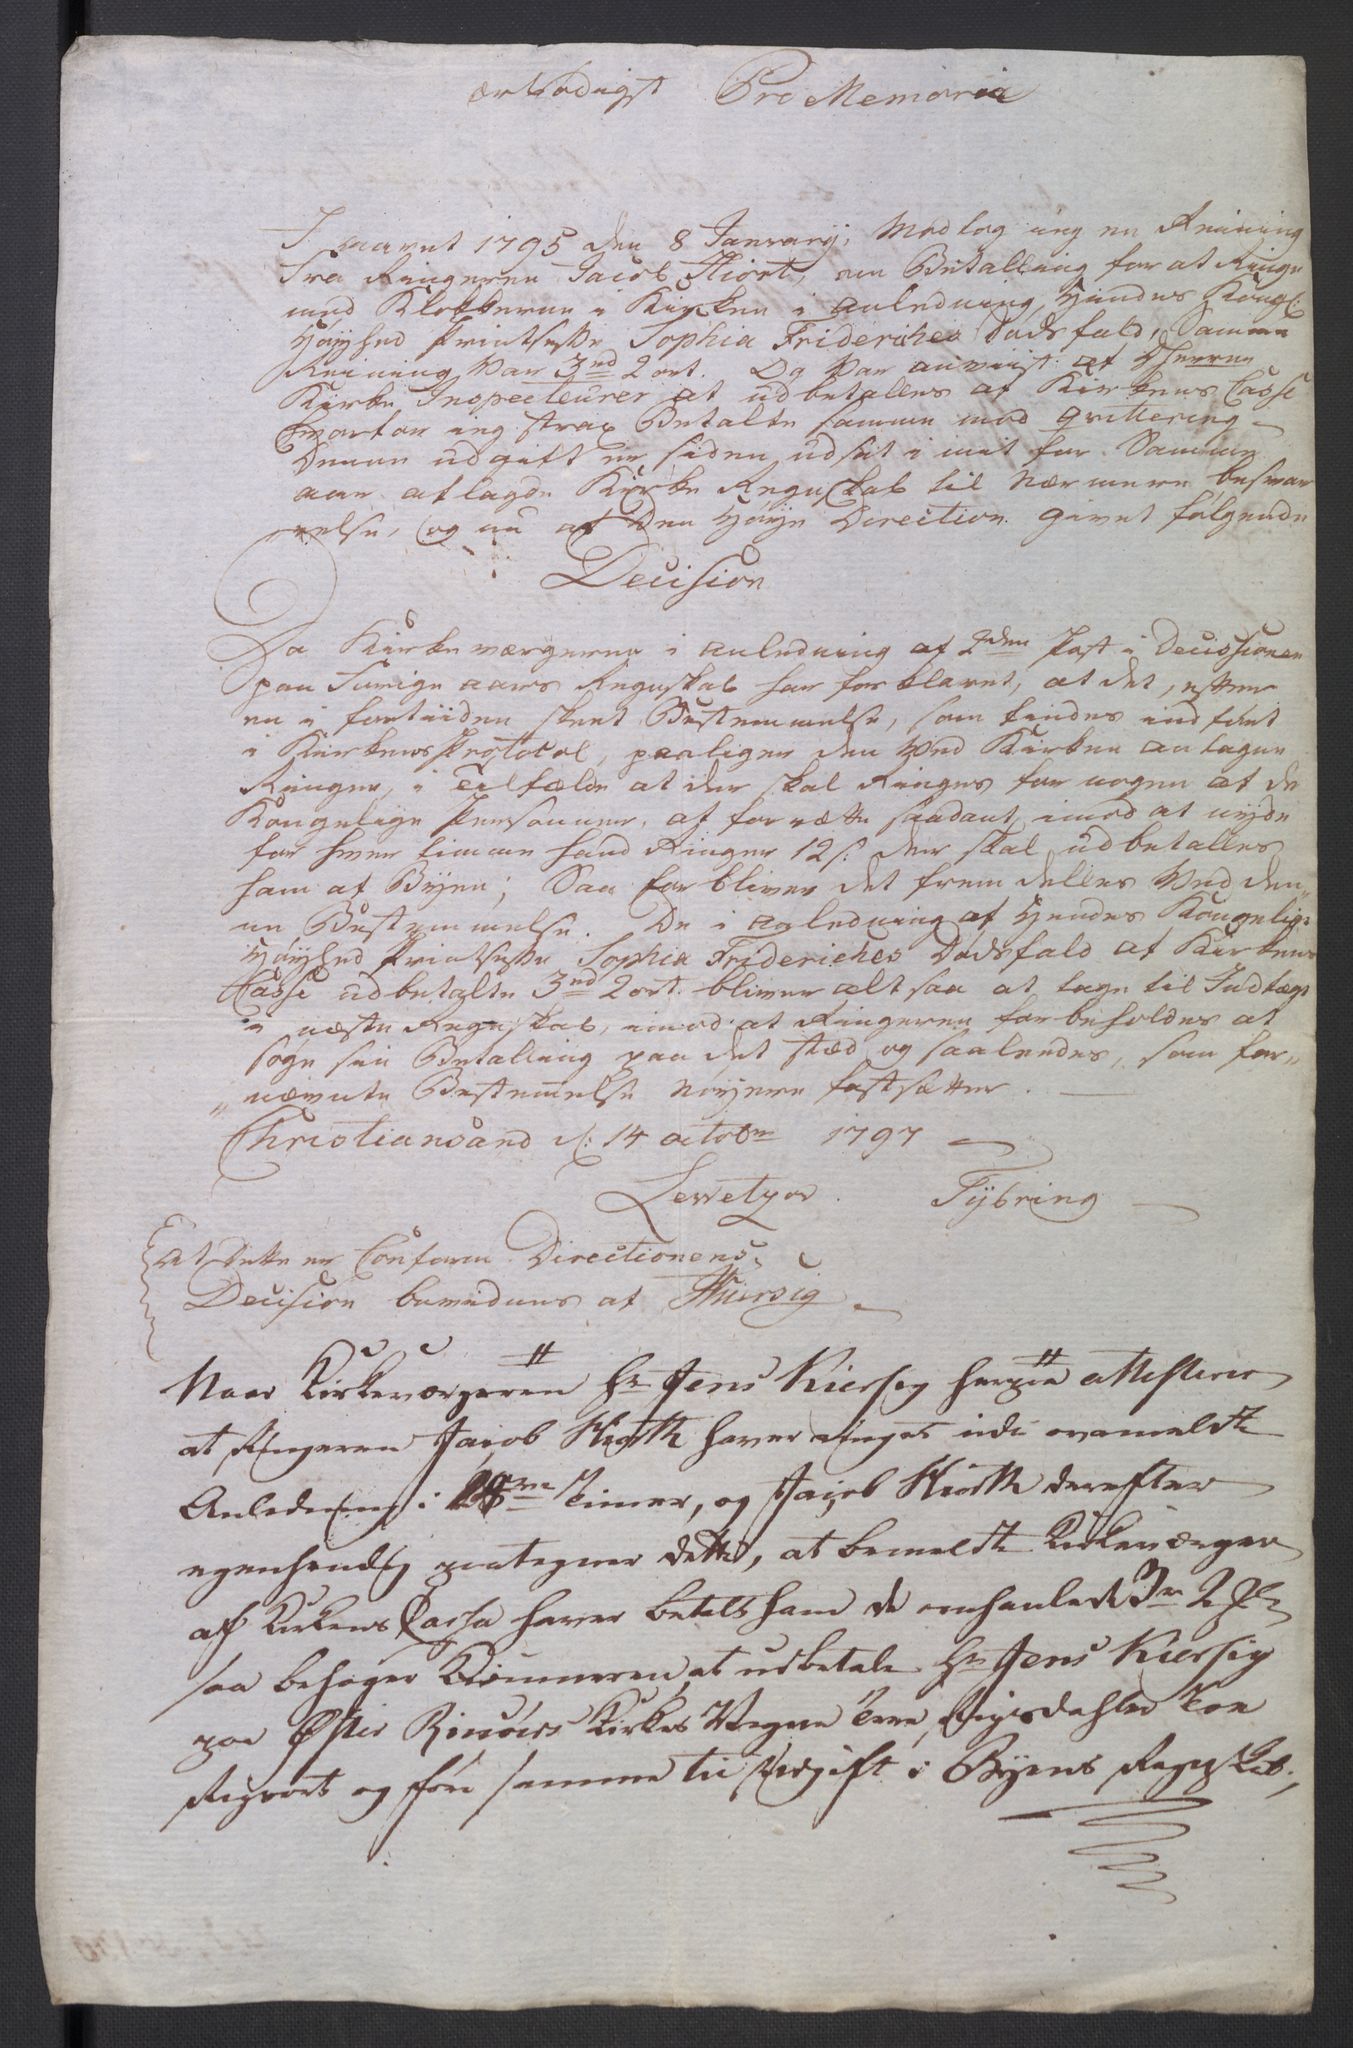 ærbødigst Pro Memoria
I aaret 1795 den 8 Januarij, Modtog ieg en Reining
fra Ringeren Jacob Hiort, om Betalling for at Ringe
med Klokkerne i Kirken i anledning Hendes Kongl:
Høyhed Printsesse Sophia Friderches Dødsfald, Samme
Reining Var 3 rd 2 ort. Og Var anvist af Herrne
Kirke Inspecteurer at udbetalles af Kirkens Casse
hvorfor ieg strax Betalte samme mod qvittering
Denne udgift er siden udsat i mit for Samme
aar aflagde Kirke Regnskab til nærmere besvar
relse, og nu af den Høye Direction givet følgende
Decision
Da Kirkeværgerne i anledning af 2den Post i Decissionen
paa Forrige aars Regnskab har forklaret, at det, efter
en i fortiiden skeet Bestemmelse, som findes indført
i Kirkens Protocol, paaligger den Ved Kirken antagne
Ringer, i Tilfælde at der skal Ringes for nogen af de
Kongelige Personner, at forrætte saadant, imod at nyde
for hver timme hand Ringer 12 s: der skal udbetalles
ham af Byen; Saa forbliver det fremdelles Ved den„
ne Bestemmelse. De i anledning af Hendes Kongelige
Høyhed Printsesse Sophia Friderches Dødsfald af Kirkens
Casse udbetalte 3 rd 2 ort. bliver altsaa at tage til Indtægt
i næste Regnskab, imod at Ringeren forbeholdes at
søge sin Betalling paa det stæd og saaledes, som for„
„nævnte Bestemmelse nøyere fastsætter.
Christiansand d: 14 octobr 1797
Levetzov. Tybring
At dette er Conform Directionens
Decision bevidnes af Kiersig
Naar Kirkeværgeren Hr Jens Kiersig herpaa attesterer
at Ringeren Jacob Hiorth haver ringet udi ovenmeldte
Anledning i Timer, og Jacob Hiorth derefter
egenhændig paategner dette, at bemeldte Kirkeværger
af Kirkens Cassa haver betalt ham de omhandlede 3 rd 2
saa behager Kiemneren, at udbetale Hr Jens Kiersig
paa Øster Riisøers Kirkes Vegne Trei Rigsdahler Toe
Rigsort og føre samme til Udgift i Byens Regnskab.